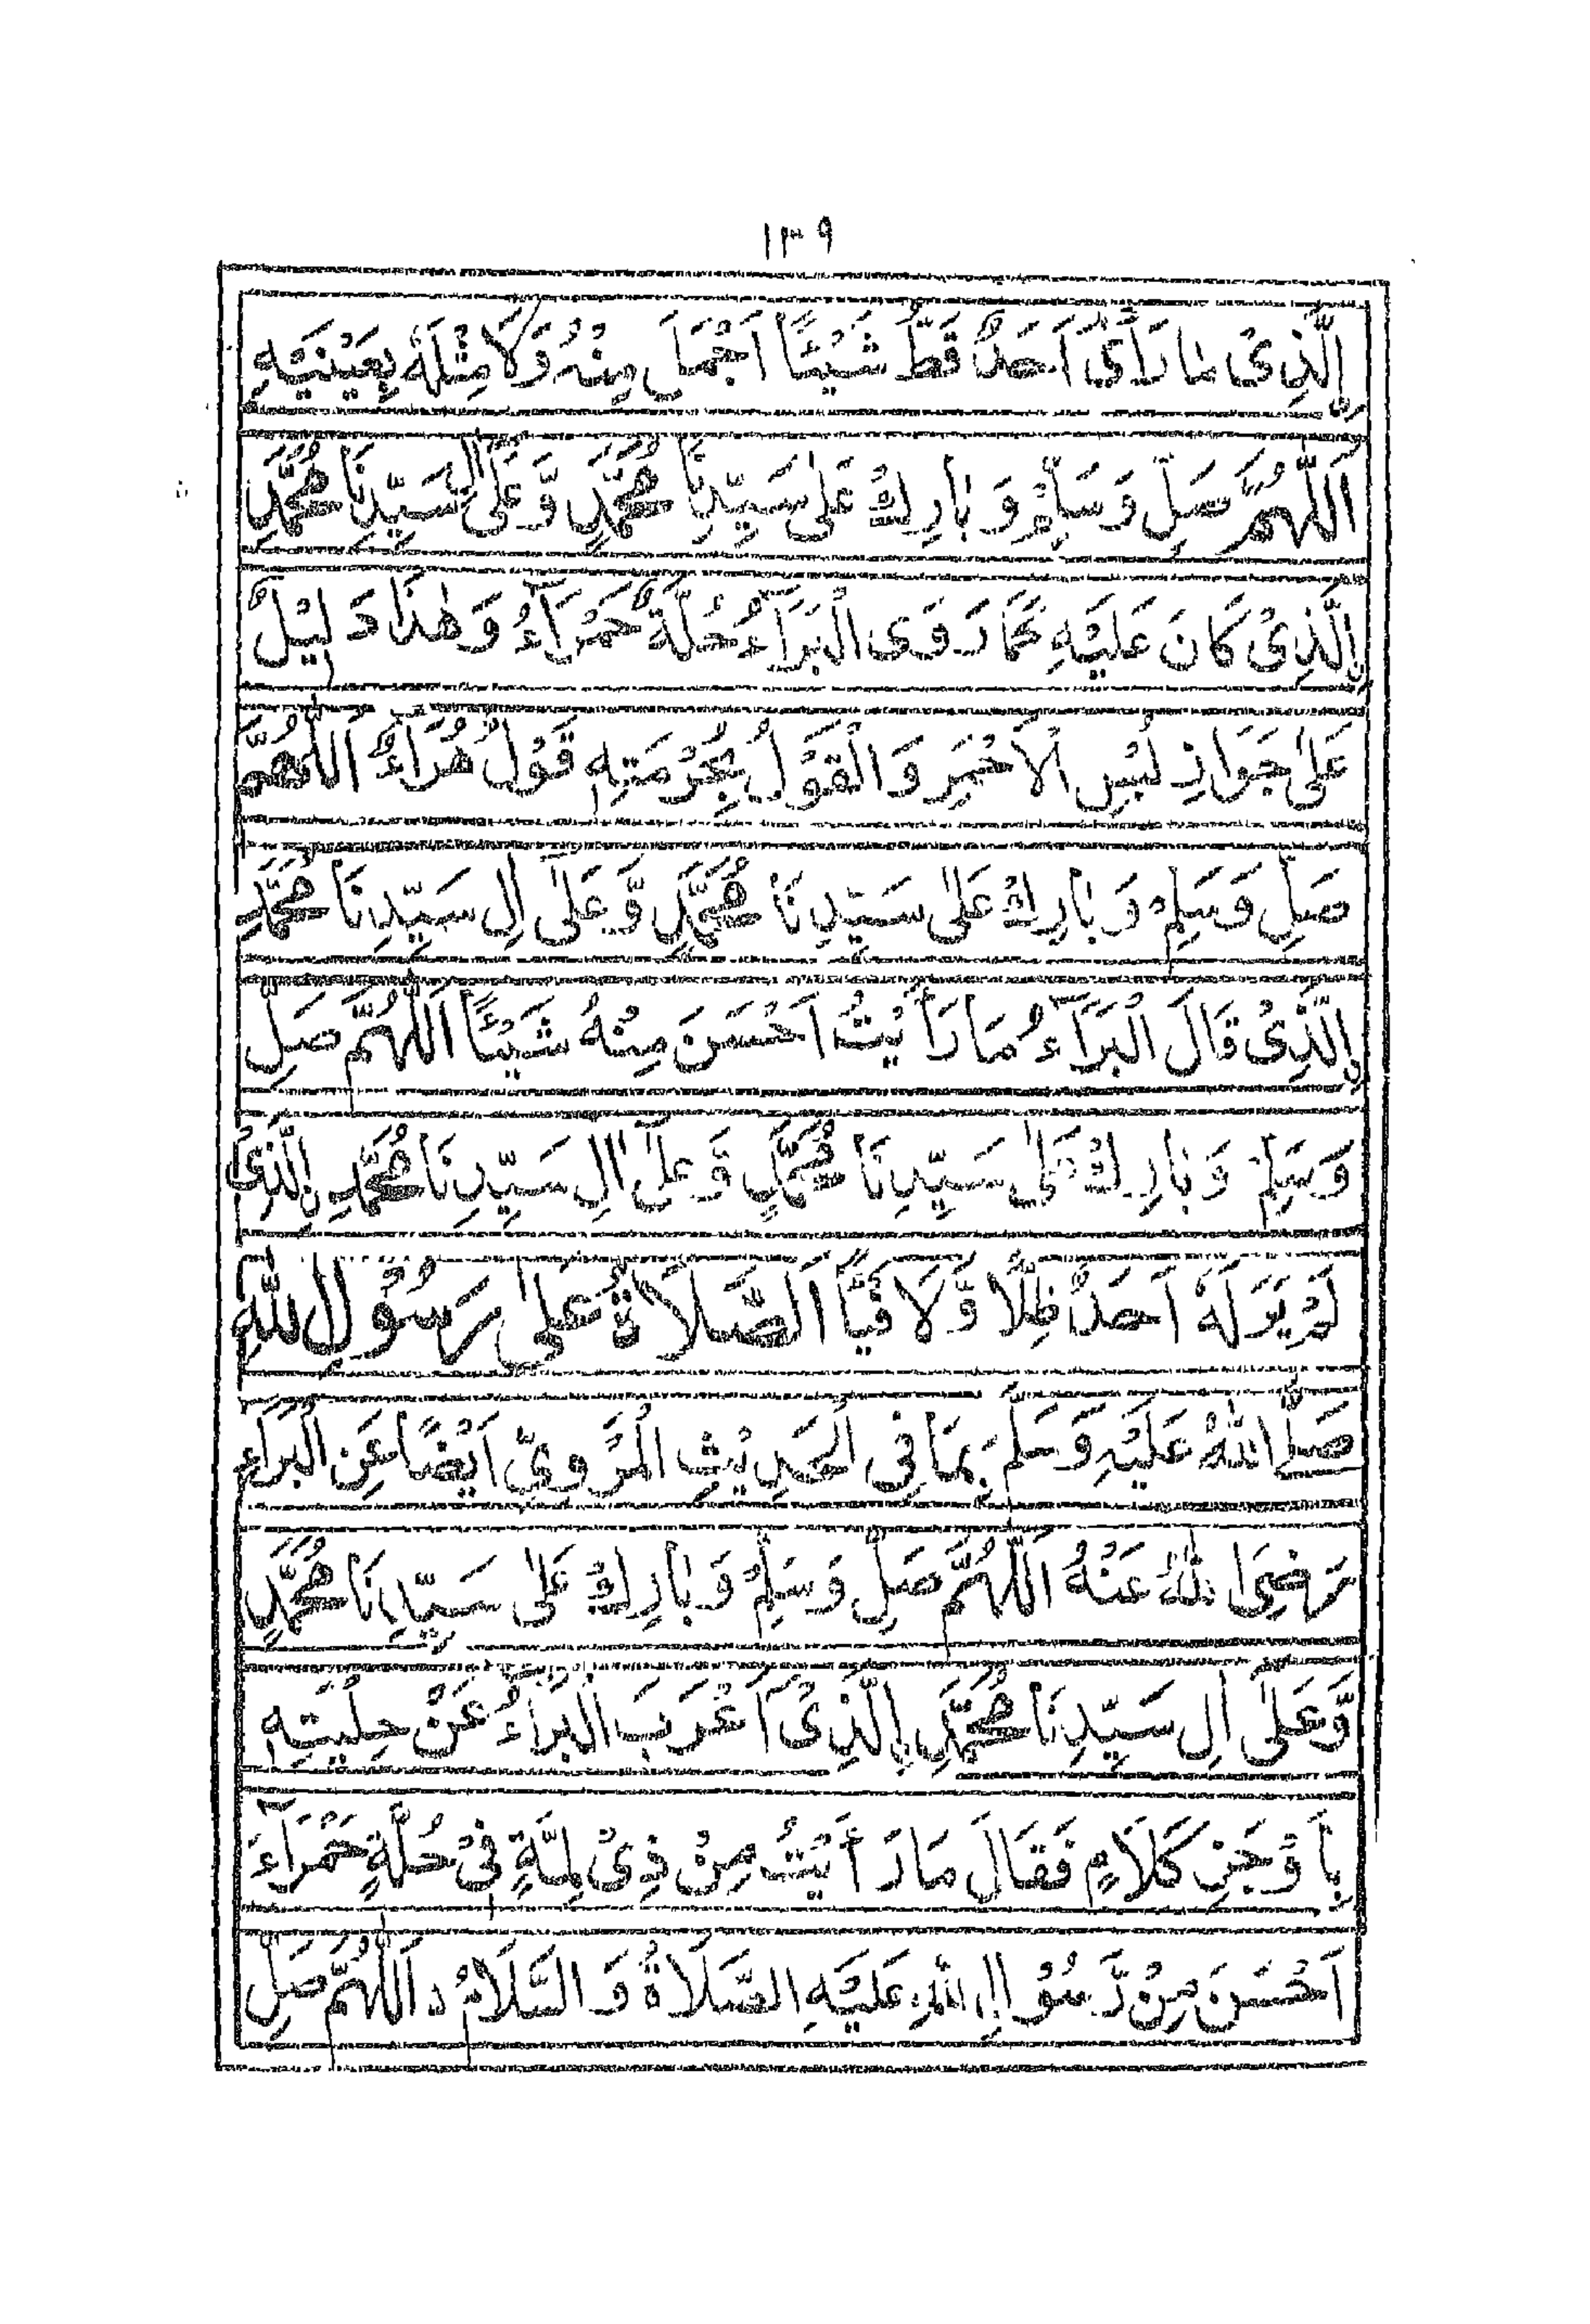 ١٣٩
اِلَّذِیْ مَا رَأٰی اَحَدٌ قَطُّ شَیْئًا اَجْمَلَ مِنْهُ وَلَا مِثْلَهٗ بِعَیْنَیْهِ
اَللّٰهُمَّ صَلِّ وَسَلِّمْ وَبَارِكْ عَلٰی سَیِّدِنَا مُحَمَّدٍ وَّعَلٰی اٰلِ سَیِّدِنَا مُحَمَّدِ
اِلَّذِیْ كَانَ عَلَیْهِ كَمَا رَوَی الْبَرَآءُ حُلَّةٌ حَمْرَآءُ وَهٰذَا دَلِیْلٌ
عَلٰی جَوَازِ لُبْسِ الْاَحْمَرِ وَالْقَوْلُ بِحُرْمَتِهٖ قَوْلٌ هُرَاءٌ اَللّٰهُمَّ
صَلِّ وَسَلِّمْ وَبَارِكْ عَلٰی سَیِّدِنَا مُحَمَّدٍ وَّعَلٰی اٰلِ سَیِّدِنَا مُحَمَّدِ
اِلَّذِیْ قَالَ الْبَرَآءُ مَا رَأَیْتُ اَحْسَنَ مِنْهُ شَیْئًا اَللّٰهُمَّ صَلِّ
وَسَلِّمْ وَبَارِكْ عَلٰی سَیِّدِنَا مُحَمَّدٍ وَعَلٰی اٰلِ سَیِّدِنَا مُحَمَّدِ اِلَّذِیْ
لَمْ یَرَ لَهٗ اَحَدٌ ظِلًّا وَّلَا فَیْأً اَلصَّلَاةُ عَلٰی رَسُوْلِ اللّٰهِ
صَلَّی اللّٰهُ عَلَیْهِ وَسَلَّمَ بِمَا فِی الْحَدِیْثِ الْمَرْوِیِّ اَیْضًا عَنِ الْبَرَآءِ
رَضِیَ اللّٰهُ عَنْهُ اَللّٰهُمَّ صَلِّ وَسَلِّمْ وَبَارِكْ عَلٰی سَیِّدِنَا مُحَمَّدٍ
وَّعَلٰی اٰلِ سَیِّدِنَا مُحَمَّدِ اِلَّذِیْ اَعْرَبَ الْبَرَآءُ عَنْ حِلْیَتِهٖ
بِاَوْجَزِ كَلَامٍ فَقَالَ مَا رَأَیْتُ مِنْ ذِیْ لِمَّةٍ فِیْ حُلَّةٍ حَمْرَآءَ
اَحْسَنَ مِنْ رَّسُوْلِ اللّٰهِ عَلَیْهِ الصَّلَاةُ وَالسَّلَامُ، اَللّٰهُمَّ صَلِّ